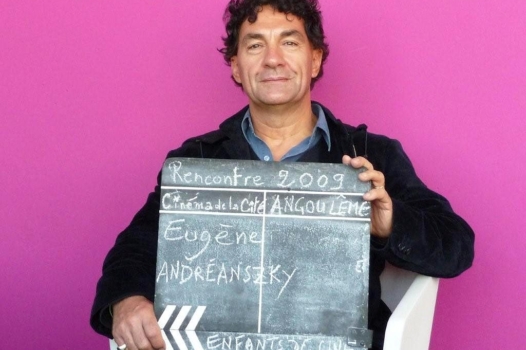 Rencontre 2009
Cinéma de la Cité ANGOULÊME
Eugène
ANDRÉANSZKY
ENFANTS DE